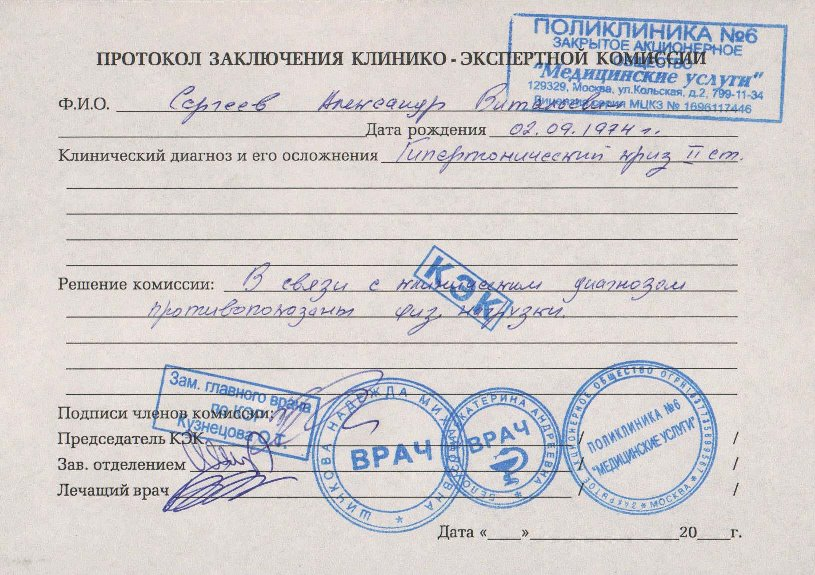 ПОЛИКЛИНИКА №6
ЗАКРЫТОЕ АКЦИОНЕРНОЕ
ОБЩЕСТВО
"Медицинские услуги"
129329, Москва, ул.Кольская, д.2, 799-11-34
Лицензия серия МЦКЗ № 1696117446
ПРОТОКОЛ ЗАКЛЮЧЕНИЯ КЛИНИКО - ЭКСПЕРТНОЙ КОМИССИИ
Ф.И.О. Сергеев Александр Витальевич
Дата рождения 02.09.1974 г.
Клинический диагноз и его осложнения Гипертонический криз II ст.
КЭК
Решение комиссии: В связи с клиническим диагнозом
противопоказаны физ. нагрузки.
Зам. главного врача
по КЭР
Кузнецова О.Г.
Подписи членов комиссии:
Председатель КЭК / /
Зав. отделением / /
Лечащий врач / /
ШИЧКОВА НАДЕЖДА
ВРАЧ
ЕКАТЕРИНА АНДРЕЕВНА
ВРАЧ
ЗАКРЫТОЕ АКЦИОНЕРНОЕ ОБЩЕСТВО
МОСКВА
ПОЛИКЛИНИКА №6
"МЕДИЦИНСКИЕ УСЛУГИ"
Дата «____»____________________20____г.